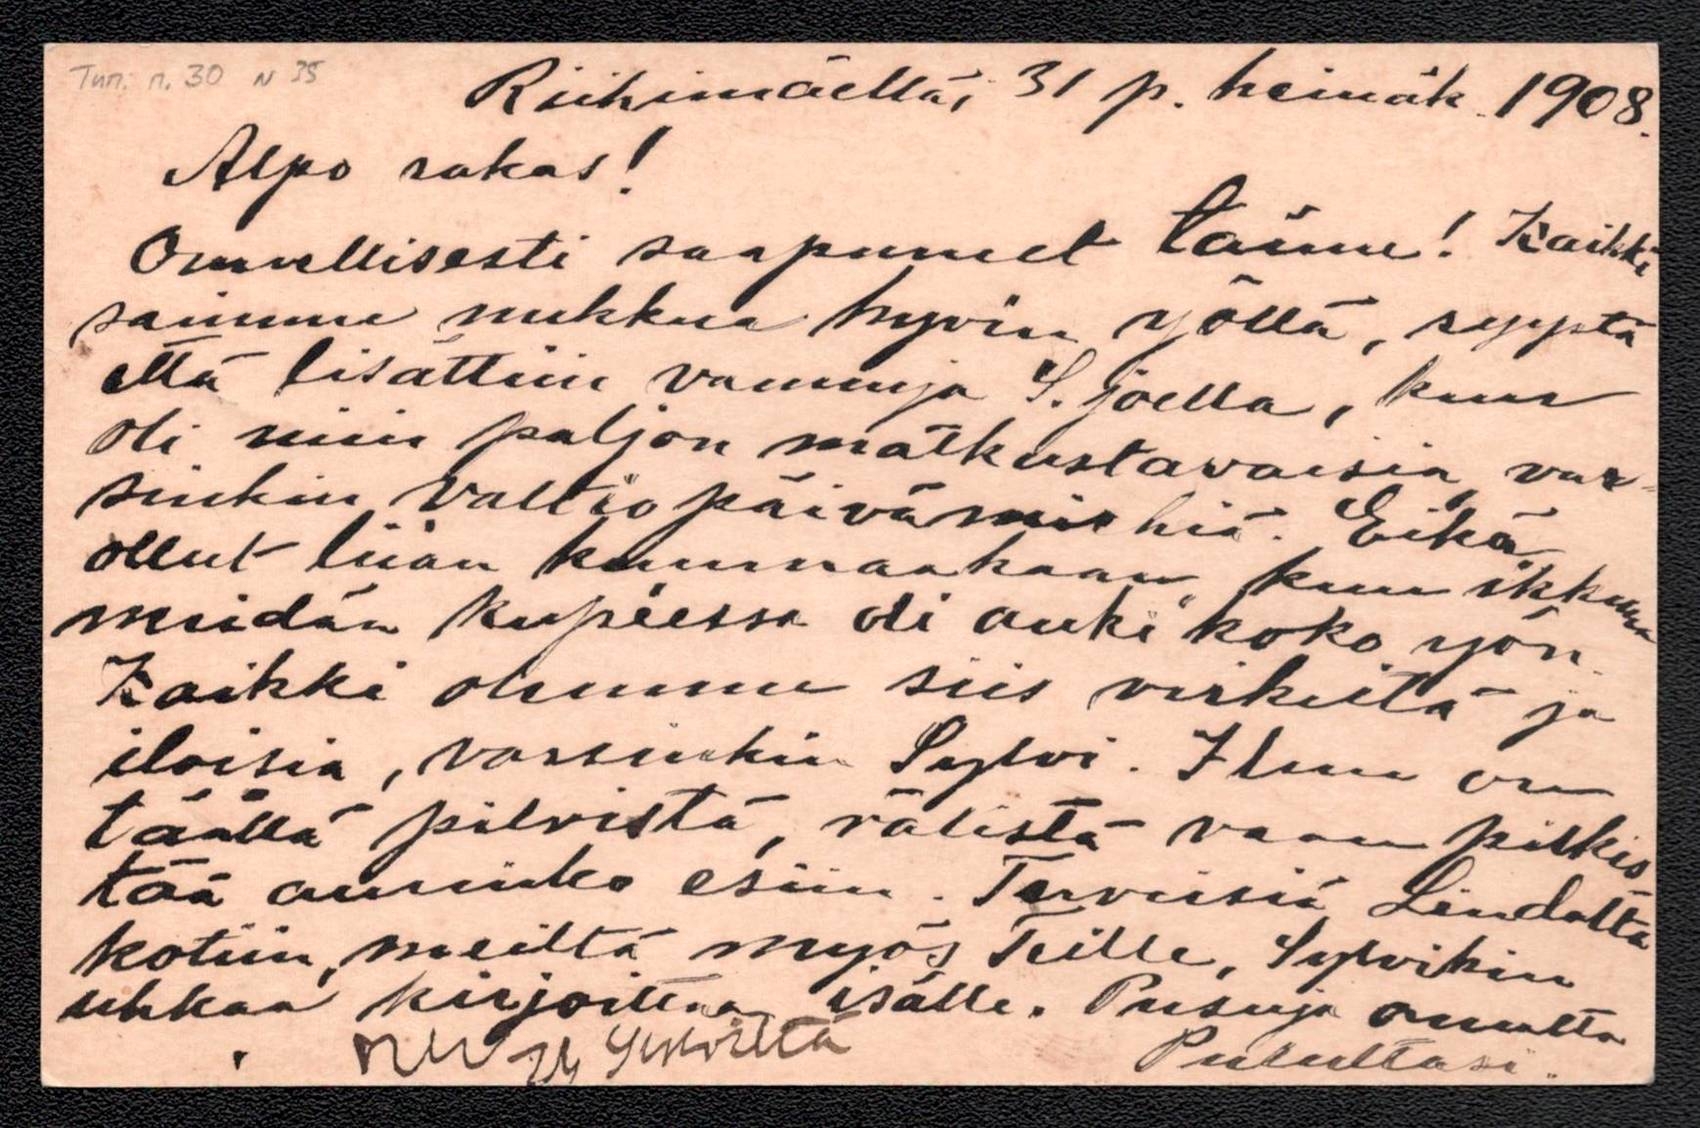 Тип. п. 30 N 35
Riihimäellä, 31 p. heinäk. 1908.
Alpo rakas!
Onnellisesti saapuneet tänne! Kaikki
saimme nukkua hyvin yöllä, syystä
että lisättiin vaunuja S.joella, kun
oli niin paljon matkustavaisia var-
sinkin valtiopäivämiehiä. Eikä
ollut liian kuumaakaan, kun ikkuna
meidän kupeessa oli auki koko yön.
Kaikki olemme siis virkeitä ja
iloisia, varsinkin Sylvi. Ilma on
täällä pilvistä, välistä vaan pilkis
tää aurinko esiin. Terveisiä Lindalta
kotiin, meiltä myös Teille, Sylvikin
uhkaa kirjoittaa isälle. Pusuja omalta
Sylviltä
Pululta­si.